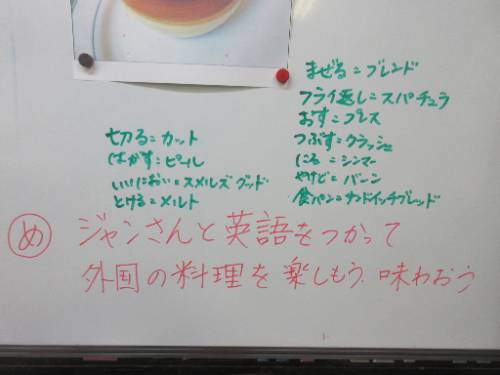 まぜる=ブレンド
フライ返し=スパチュラ
おす=プレス
つぶす=クラッシュ
にる=シンマー
やけど=バーン
食パン=サンドイッチブレッド
切る=カット
はがす=ピール
いいにおい=スメルズグッド
とける=メルト
め ジャンさんと英語をつかって
外国の料理を楽しもう 味わおう